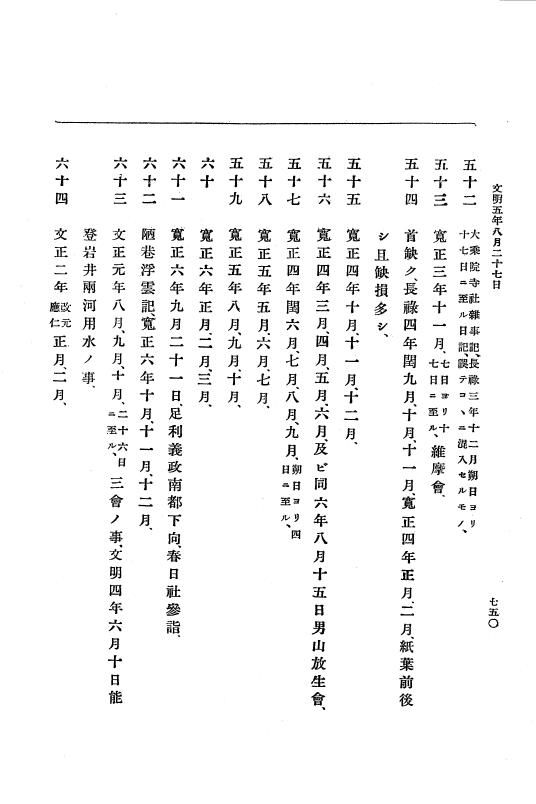 文明五年八月二十七日
七五〇
五十二 大乘院寺社雜事記、長祿三年十二月朔日ヨリ
十七日ニ至ル日記、誤テコヽニ混入セルモノ、
五十三 寬正三年十一月、七日ヨリ十七日ニ至ル、維摩會、
五十四 首缺ク、長祿四年閏九月、十月、十一月、寬正四年正月、二月、紙葉前後
シ且缺損多シ、
五十五 寬正四年十月、十一月、十二月、
五十六 寬正四年三月、四月、五月、六月、及ビ同六年八月十五日男山放生會、
五十七 寬正四年閏六月、七月、八月、九月、朔日ヨリ四日ニ至ル、
五十八 寬正五年五月、六月、七月、
五十九 寬正五年八月、九月、十月、
六十 寬正六年正月、二月、三月、
六十一 寬正六年九月二十一日、足利義政南都下向、春日社參詣、
六十二 陋巷浮雲記、寬正六年十月、十一月、十二月、
六十三 文正元年八月、九月、十月、二十六日ニ至ル、三會ノ事、文明四年六月十日能
登岩井兩河用水ノ事、
六十四 文正二年改元應仁正月、二月、